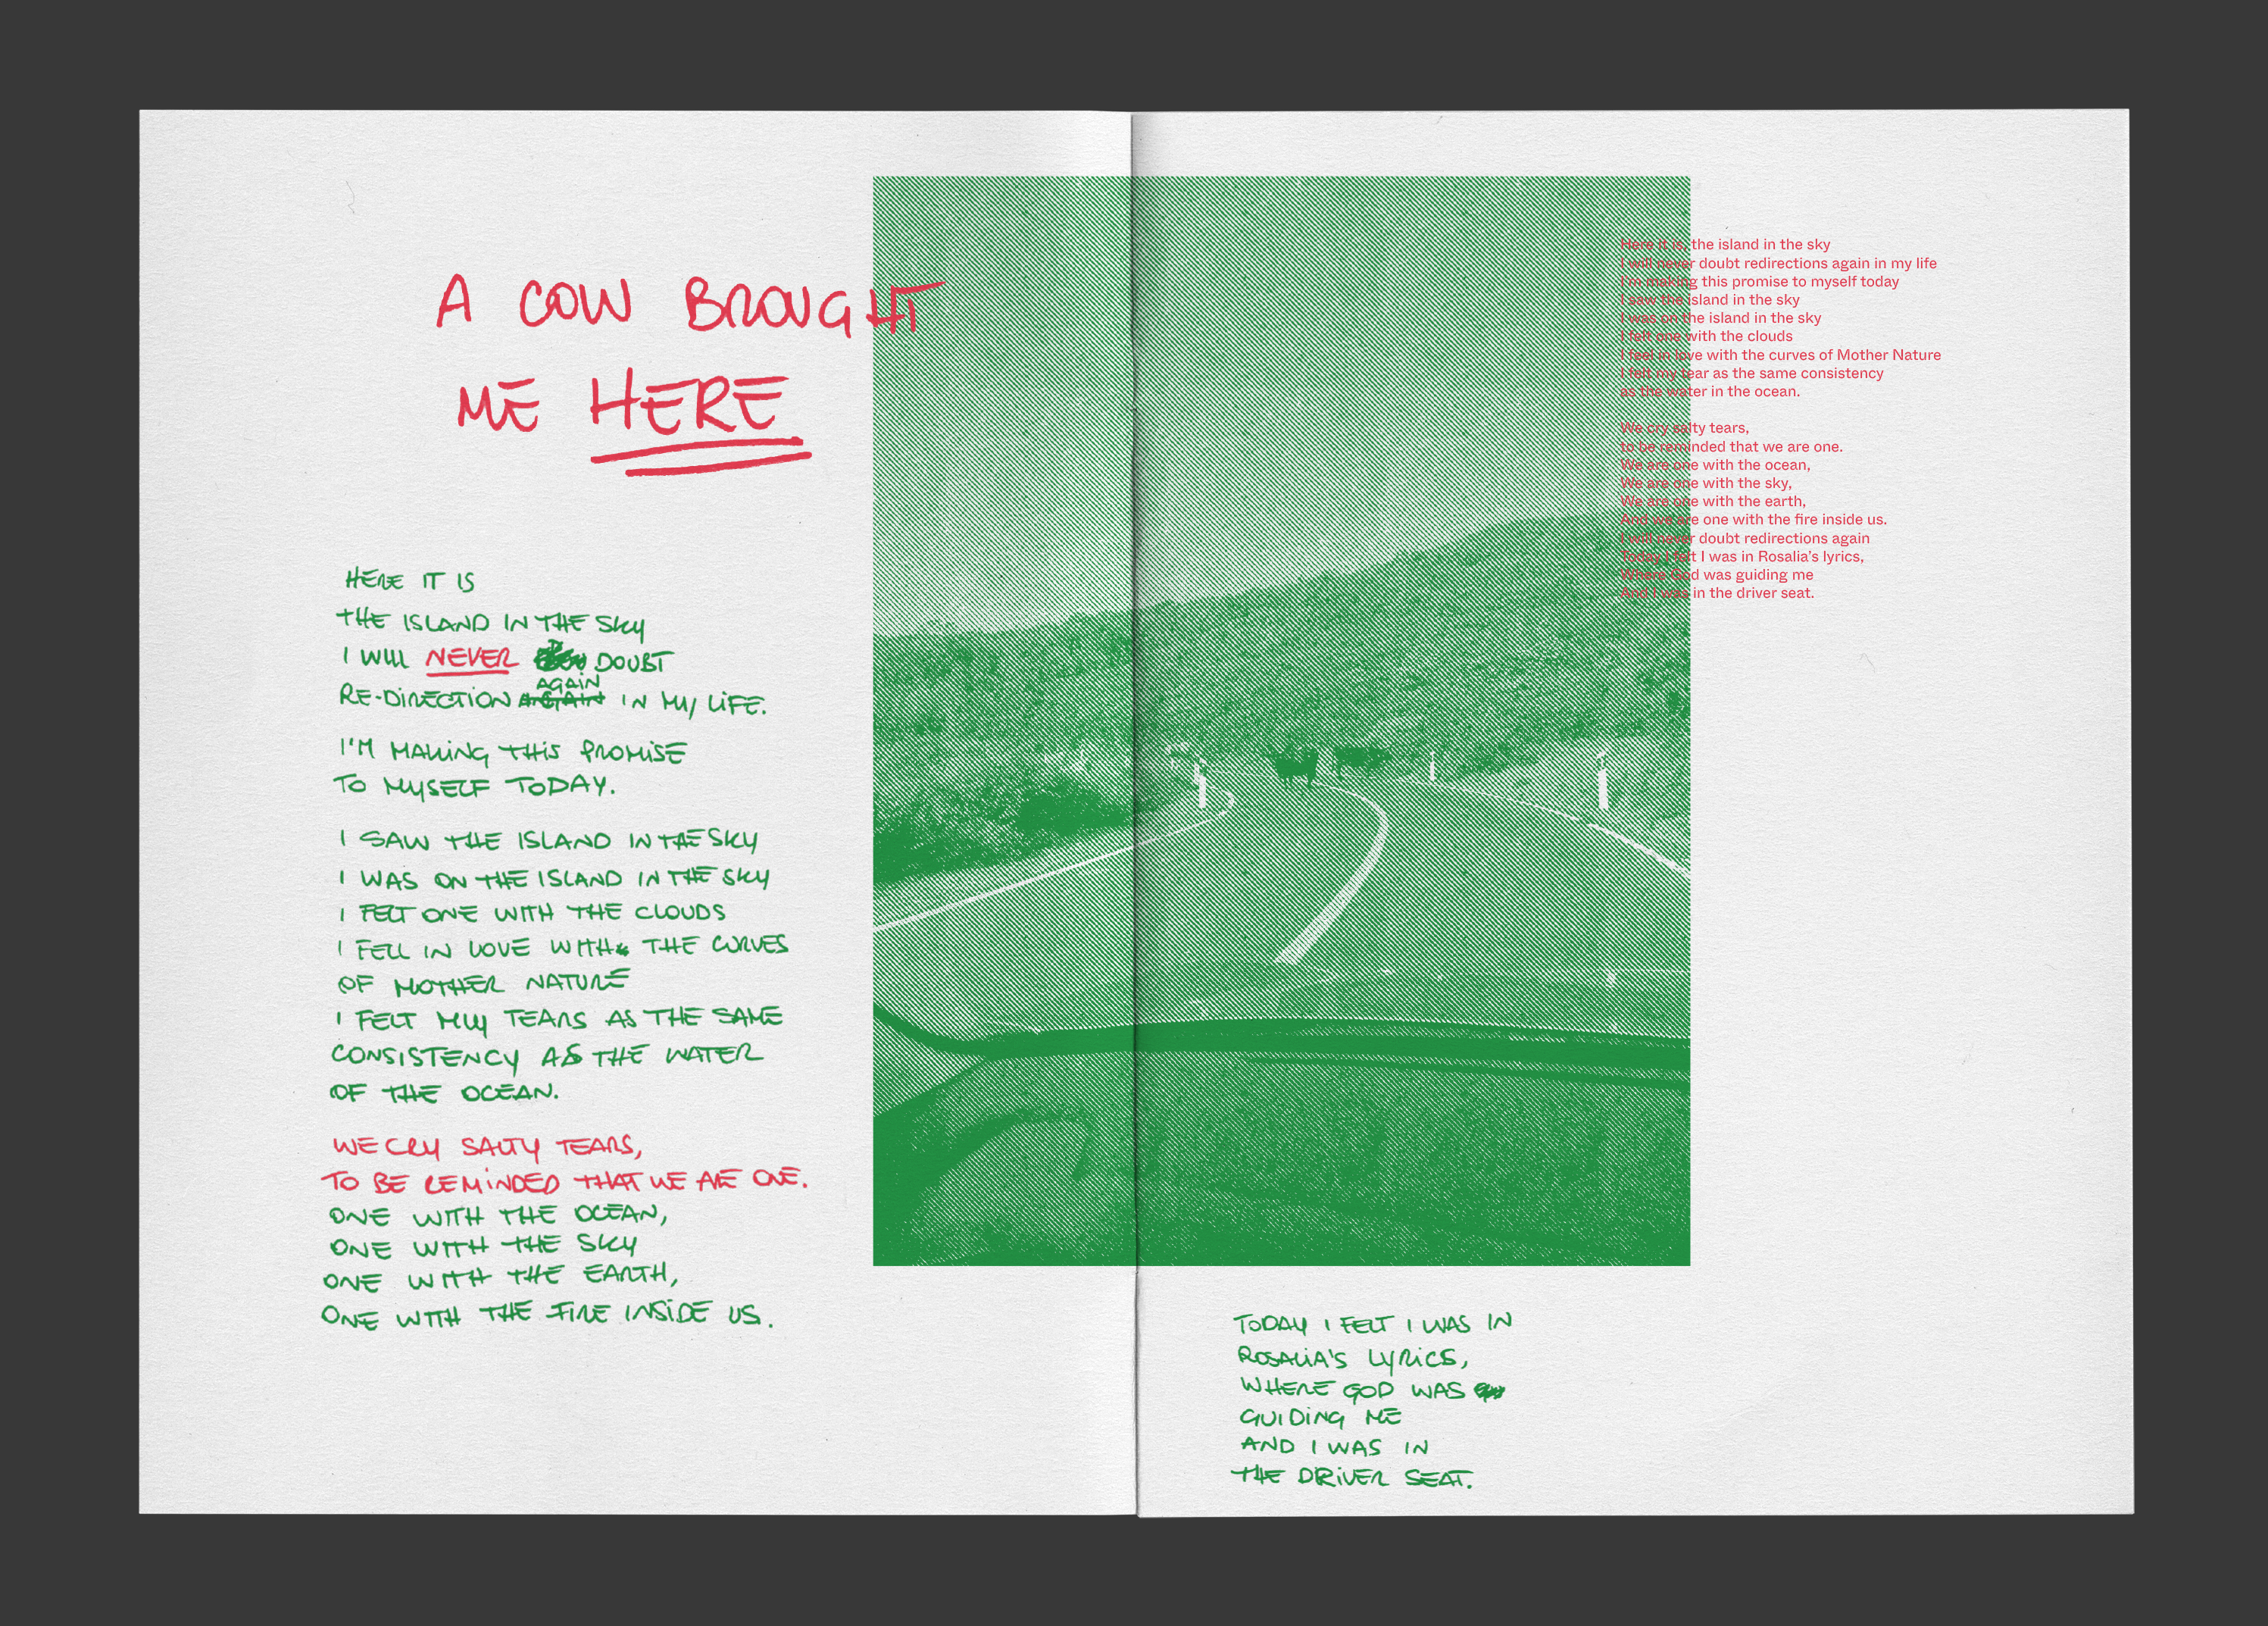 A COW BROUGHT
ME HERE
HERE IT IS
THE ISLAND IN THE SKY
I WILL NEVER DOUBT
RE-DIRECTION AGAIN AGAIN IN MY LIFE.
I'M MAKING THIS PROMISE
TO MYSELF TODAY.
I SAW THE ISLAND IN THE SKY
I WAS ON THE ISLAND IN THE SKY
I FELT ONE WITH THE CLOUDS
I FELL IN LOVE WITH THE CURVES
OF MOTHER NATURE
I FELT MY TEARS AS THE SAME
CONSISTENCY AS THE WATER
OF THE OCEAN.
WE CRY SALTY TEARS,
TO BE REMINDED THAT WE ARE ONE.
ONE WITH THE OCEAN,
ONE WITH THE SKY
ONE WITH THE EARTH,
ONE WITH THE FIRE INSIDE US.
Here it is, the island in the sky
I will never doubt redirections again in my life
I'm making this promise to myself today
I saw the island in the sky
I was on the island in the sky
I felt one with the clouds
I feel in love with the curves of Mother Nature
I felt my tear as the same consistency
as the water in the ocean.
We cry salty tears,
to be reminded that we are one.
We are one with the ocean,
We are one with the sky,
We are one with the earth,
And we are one with the fire inside us.
I will never doubt redirections again
Today I felt I was in Rosalia's lyrics,
Where God was guiding me
And I was in the driver seat.
TODAY I FELT I WAS IN
ROSALIA'S LYRICS,
WHERE GOD WAS
GUIDING ME
AND I WAS IN
THE DRIVER SEAT.